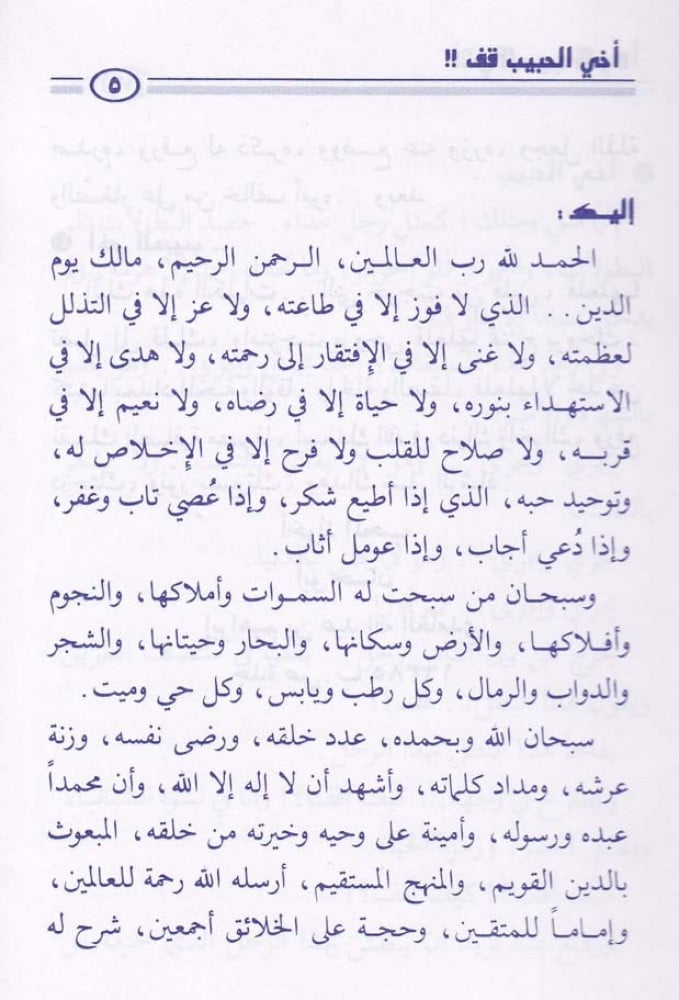 أخي الحبيب قف !!
٥
إليك :
الحمد لله رب العالمين، الرحمن الرحيم، مالك يوم
الدين.. الذي لا فوز إلا في طاعته، ولا عز إلا في التذلل
لعظمته، ولا غنى إلا في الإفتقار إلى رحمته، ولا هدى إلا في
الاستهداء بنوره، ولا حياة إلا في رضاه، ولا نعيم إلا في
قربه، ولا صلاح للقلب ولا فرح إلا في الإخلاص له،
وتوحيد حبه، الذي إذا أطيع شكر، وإذا عُصي تاب وغفر،
وإذا دُعي أجاب، وإذا عومل أثاب.
وسبحان من سبحت له السموات وأملاكها، والنجوم
وأفلاكها، والأرض وسكانها، والبحار وحيتانها، والشجر
والدواب والرمال، وكل رطب ويابس، وكل حي وميت.
سبحان الله وبحمده، عدد خلقه، ورضى نفسه، وزنة
عرشه، ومداد كلماته، وأشهد أن لا إله إلا الله، وأن محمداً
عبده ورسوله، وأمينة على وحيه وخيرته من خلقه، المبعوث
بالدين القويم، والمنهج المستقيم، أرسله الله رحمة للعالمين،
وإماماً للمتقين، وحجة على الخلائق أجمعين، شرح له